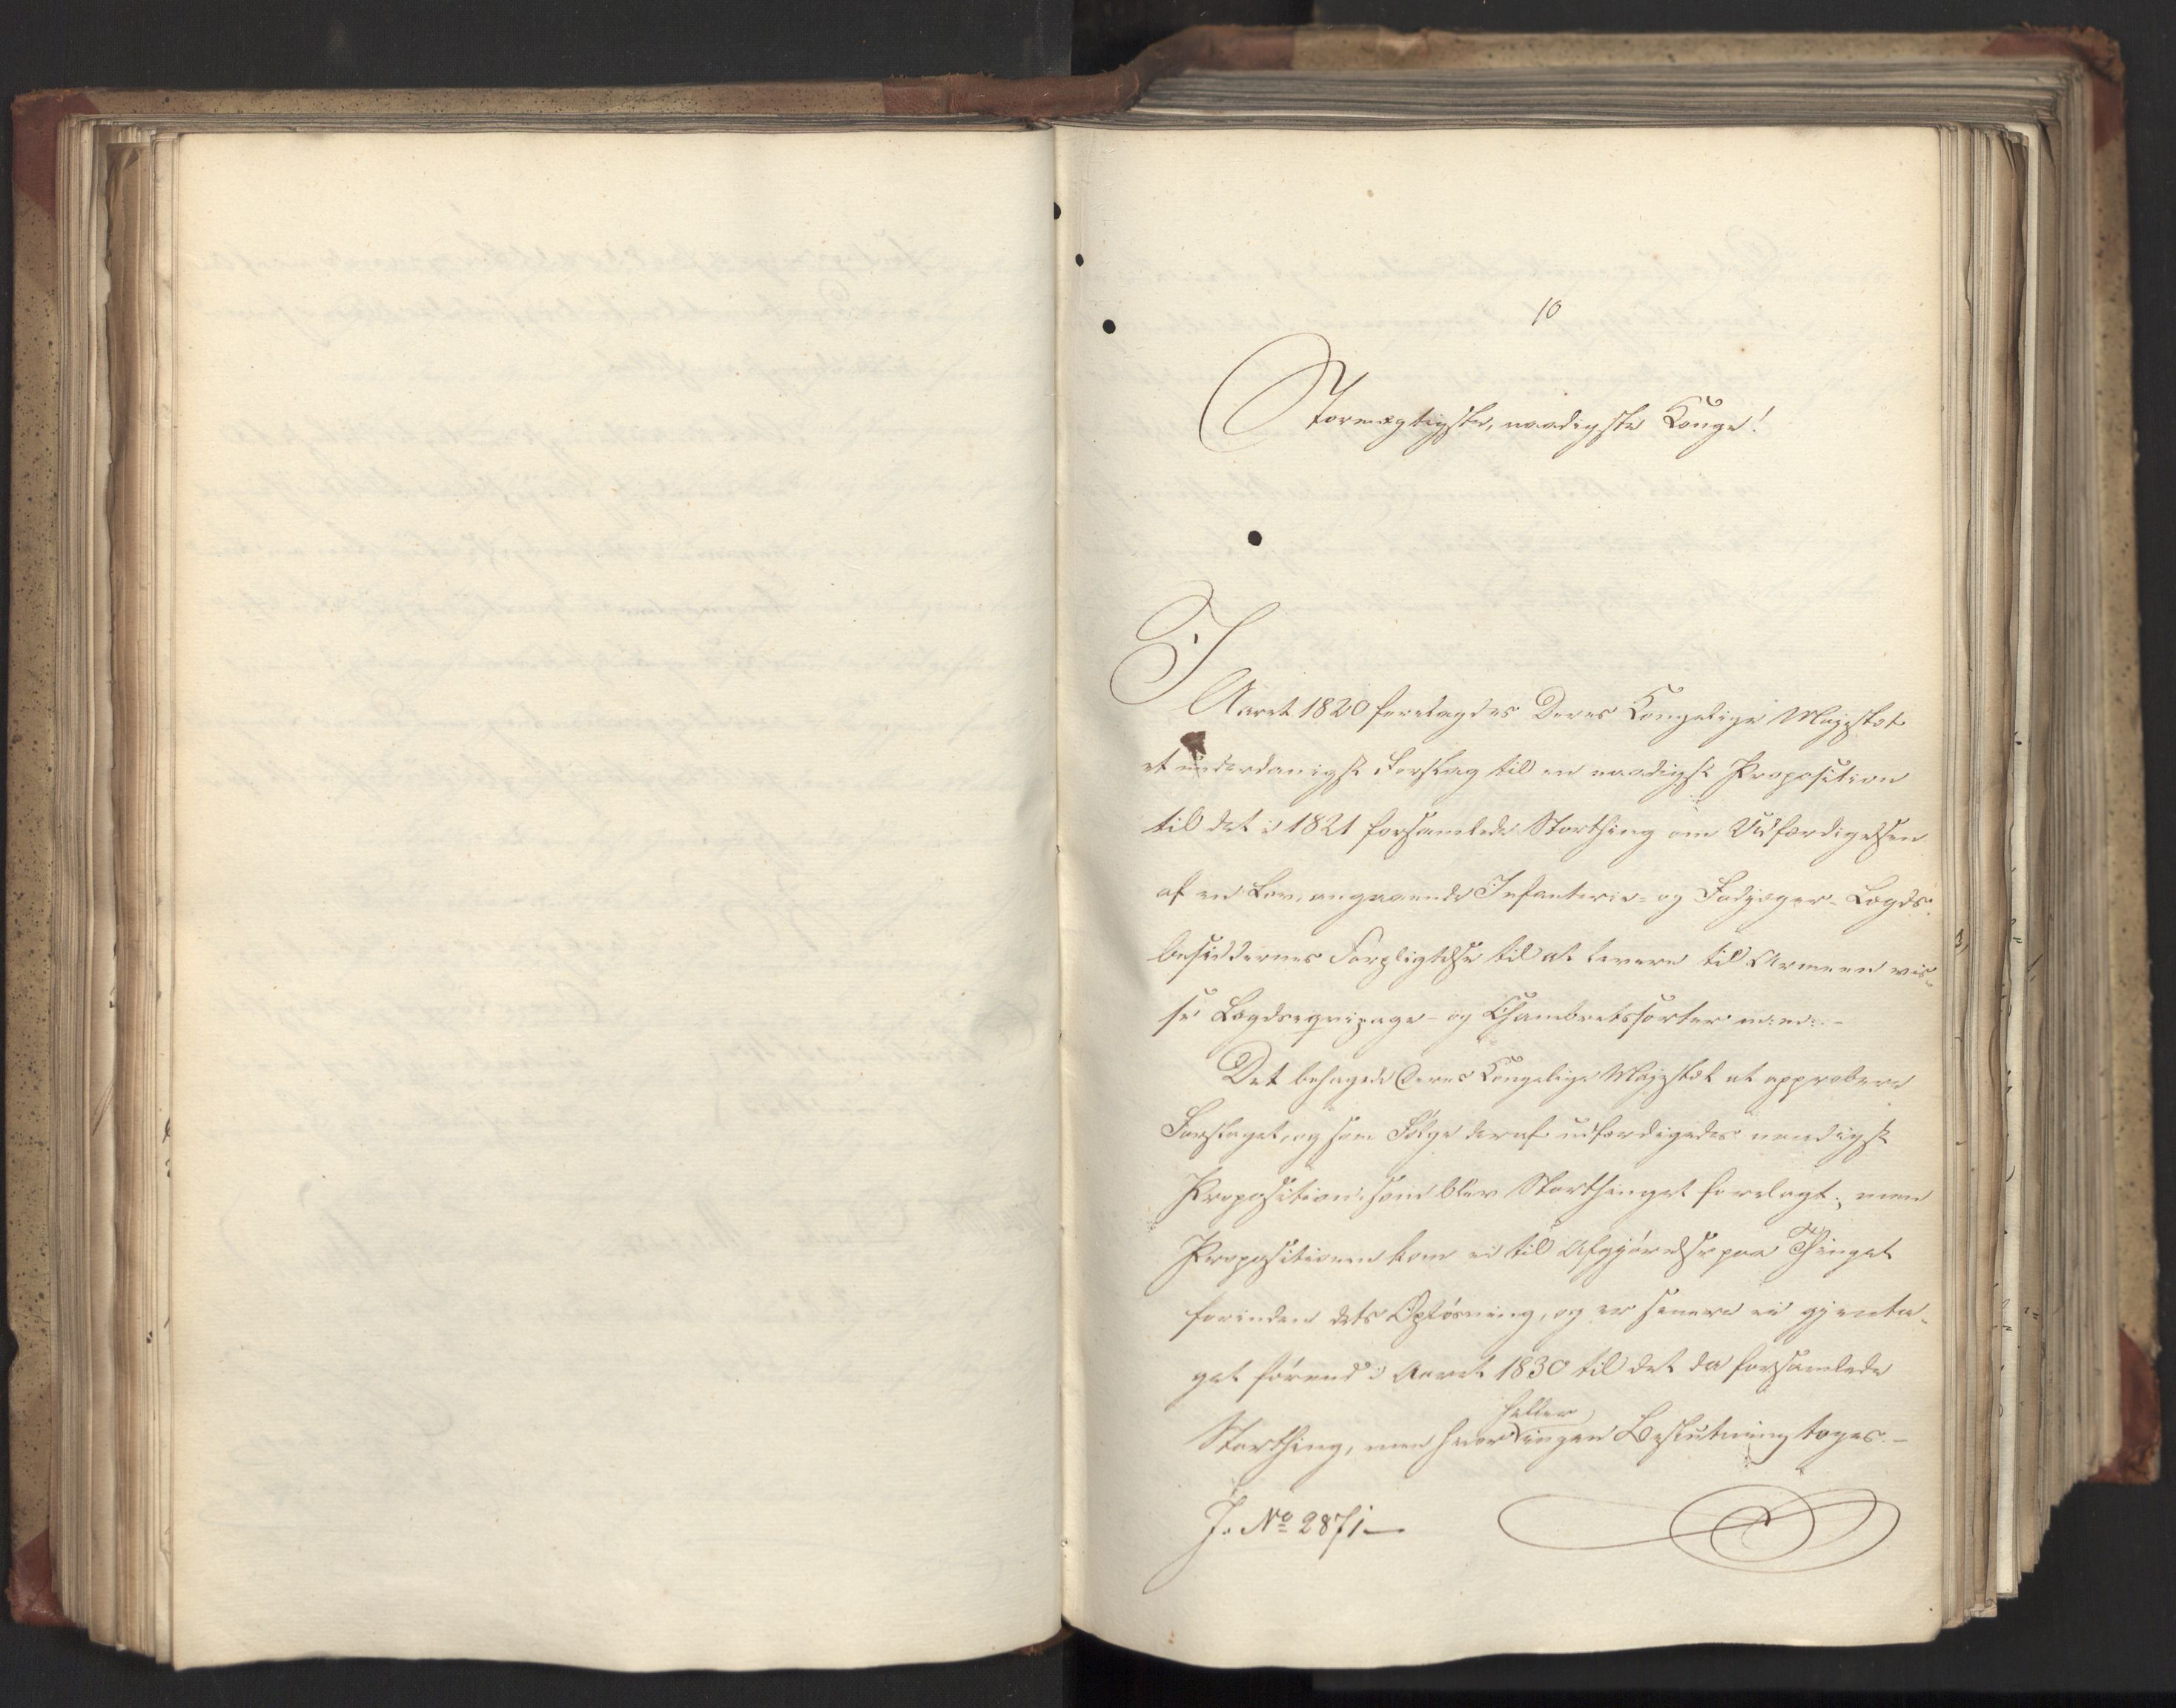 10
Stormægtigste, naadigste Konge!
I Aaret 1820 forelagdes Deres Kongelige Majestæt
et underdanigst Forslag til en naadigst Proposition
til det i 1821 forsamlede Storthing om Udfærdigelsen
af en Lov, angaaende Infanterie- og Fodjæger-Lægds-
besiddernes Forpligtelse til at levere til Armeen vis-
se Lægdsequipage- og Chambretssorter m: m: -
Det behagede Deres Kongelige Majestæt at approbere
Forslaget, og som Følge deraf udfærdigedes naadigst
Proposition, som blev Storthinget forelagt; men
Propositionen kom ei til Afgjørelse paa Thinget
forinden dets Opløsning, og er senere ei gjenta-
get førend i Aaret 1830 til det da forsamlede
Storthing, men hvor heller ingen Beslutning toges. -
J. No 2871 -